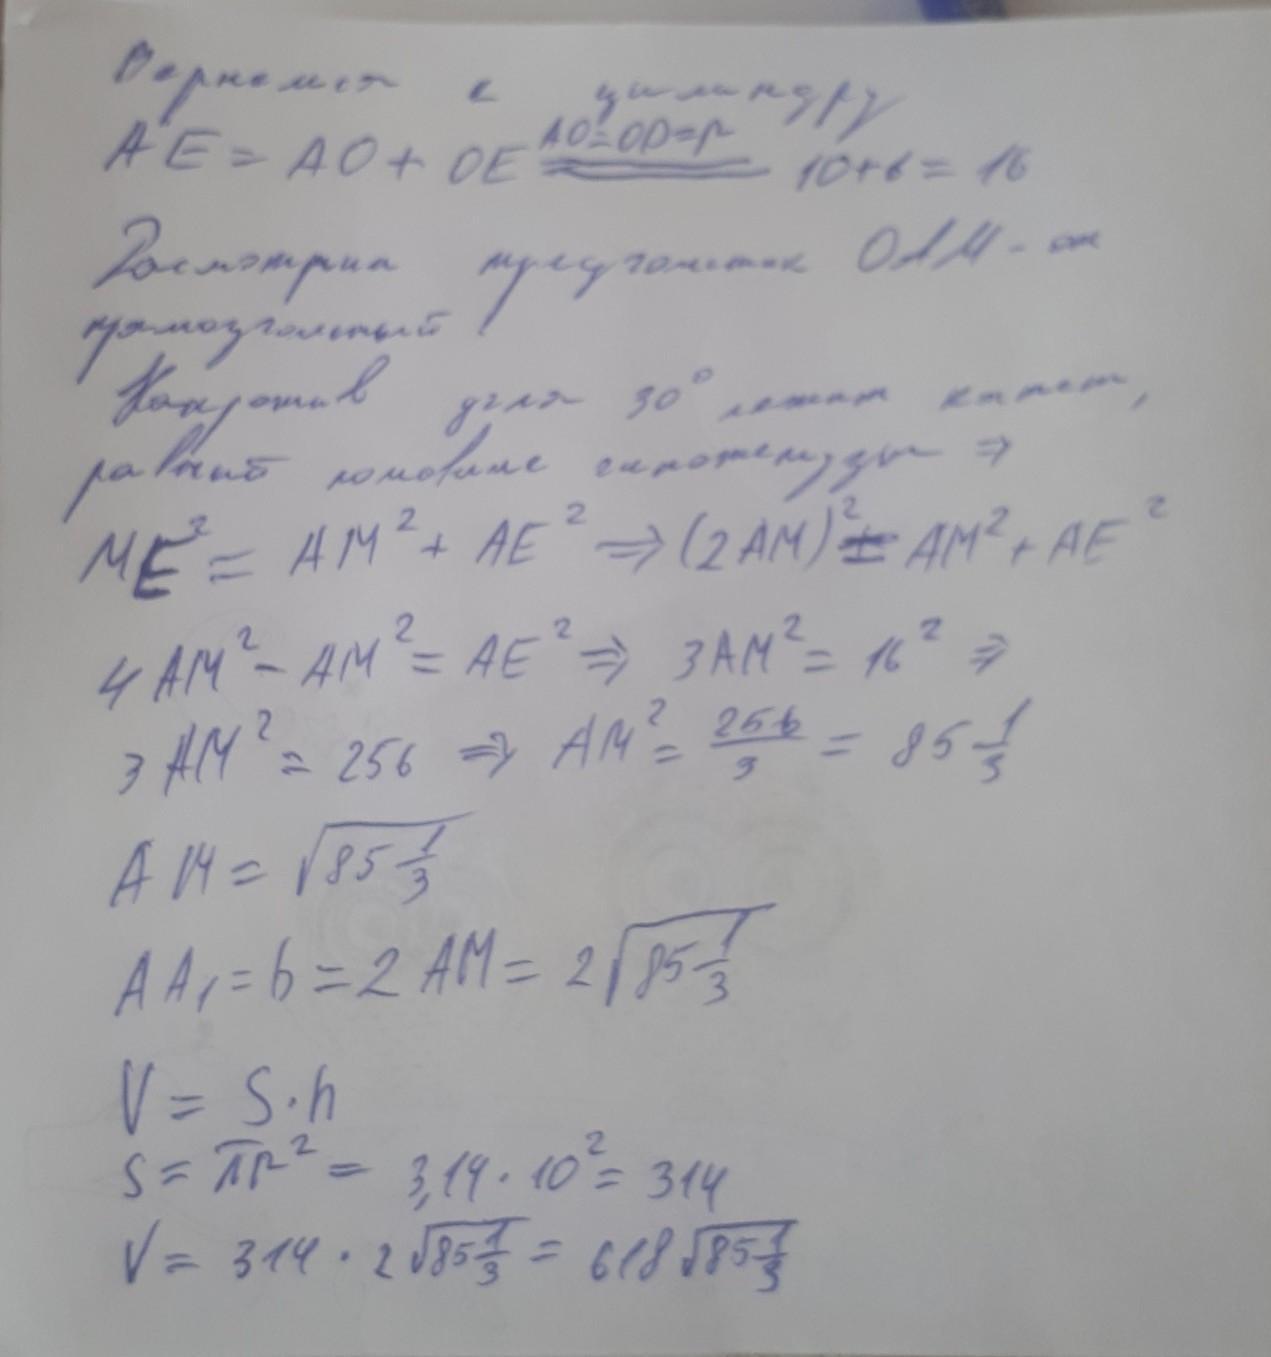 Вернемся к цилиндру
AE = AO + OE =(AO=OD=r) 10+6 = 16
Рассмотрим треугольник OAM - он
прямоугольный.
Напротив угла 30° лежит катет,
равный половине гипотенузы ⇒
ME² = AM² + AE² ⇒ (2AM)² = AM² + AE²
4AM² - AM² = AE² ⇒ 3AM² = 16² ⇒
3AM² = 256 ⇒ AM² = 256/3 = 85 1/3
AM = √(85 1/3)
AA₁ = b = 2AM = 2√(85 1/3)
V = S·h
S = πr² = 3,14 · 10² = 314
V = 314 · 2√(85 1/3) = 618√(85 1/3)